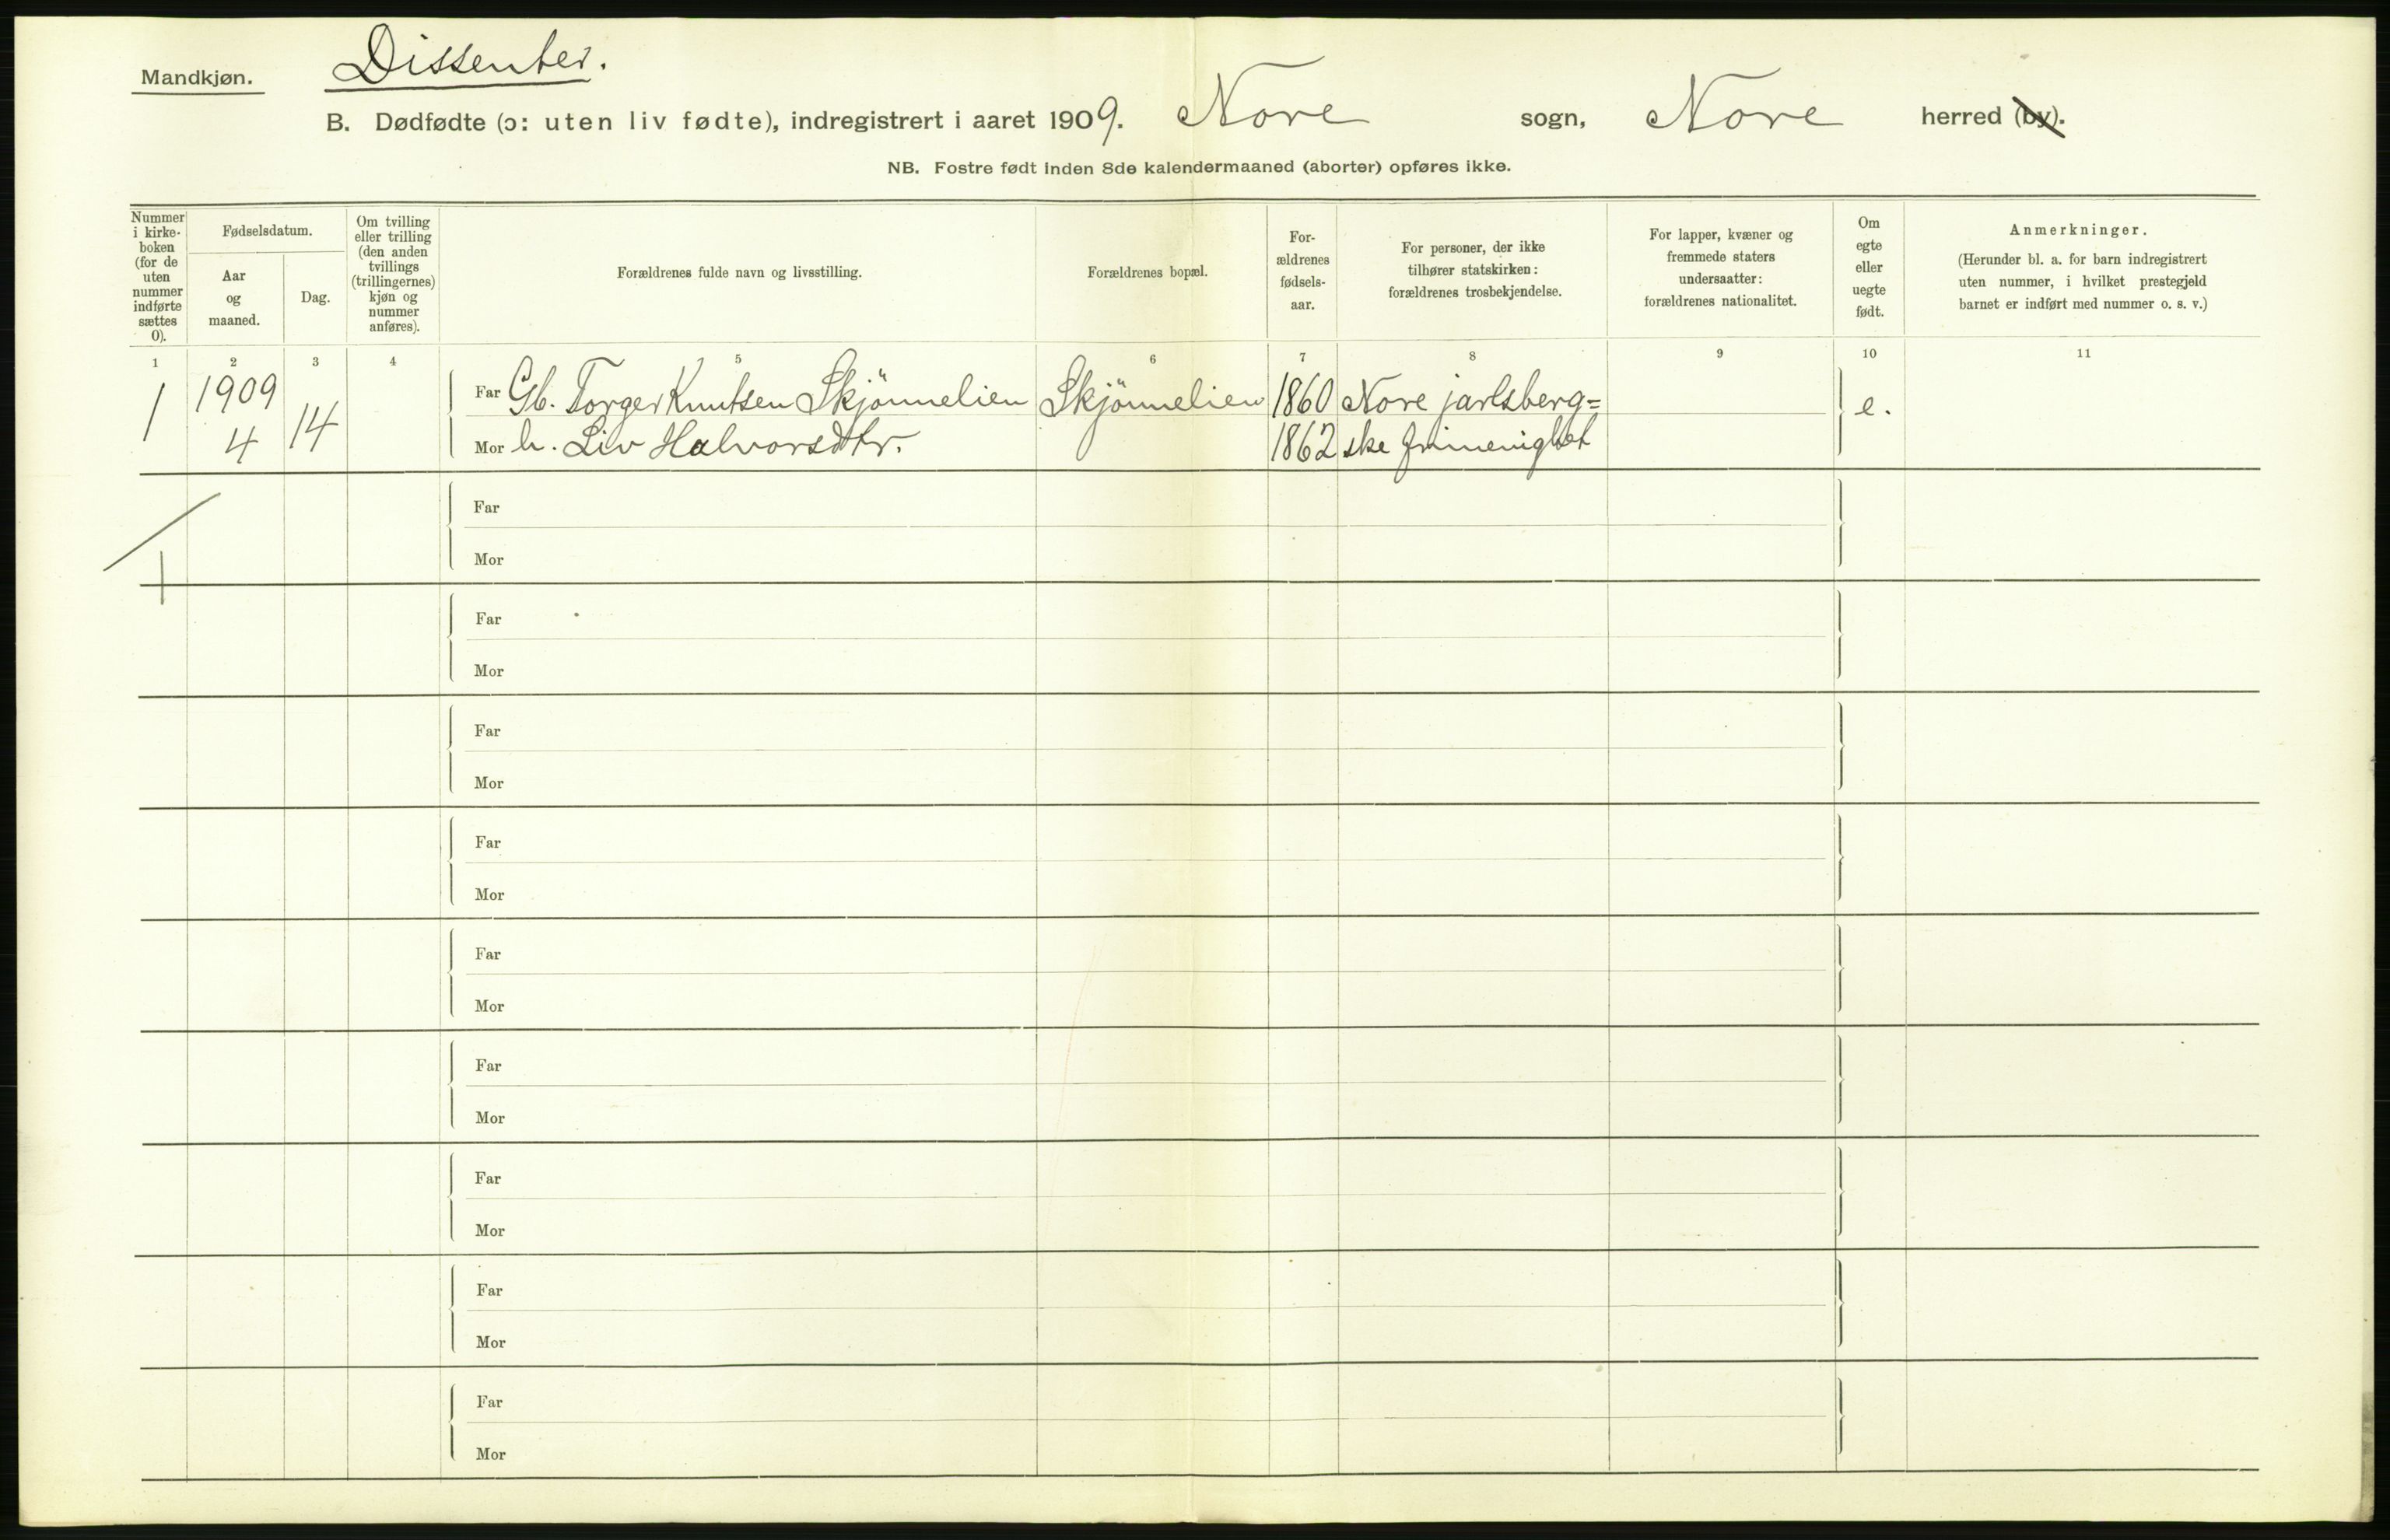 Mandkjøn.
Dissenter.
B. Dødfødte (ɔ: uten liv fødte), indregistrert i aaret 1909. Nore sogn, Nore herred (by).
NB. Fostre født inden 8de kalendermaaned (aborter) opføres ikke.
Nummer i kirke-boken (for de uten nummer indførte sættes 0).
Fødselsdatum.
Aar og maaned.
Dag.
Om tvilling eller trilling (den anden tvillings (trillingernes) kjøn og nummer anføres).
Forældrenes fulde navn og livsstilling.
Forældrenes bopæl.
For-ældrenes fødsels-aar.
For personer, der ikke tilhører statskirken: forældrenes trosbekjendelse.
For lapper, kvæner og fremmede staters undersaatter: forældrenes nationalitet.
Om egte eller uegte født.
Anmerkninger.
(Herunder bl. a. for barn indregistrert uten nummer, i hvilket prestegjeld barnet er indført med nummer o. s. v.)
1 2 3 4 5 6 7 8 9 10 11
1 1909 4 14
Far Gb. Torger Knutsen Skjönnelien Skjönnelien 1860 Nore jarlsberg= e.
Mor h. Liv Halvorsdtr. 1862 ske frimenighet
Far
Mor
1
Far
Mor
Far
Mor
Far
Mor
Far
Mor
Far
Mor
Far
Mor
Far
Mor
Far
Mor